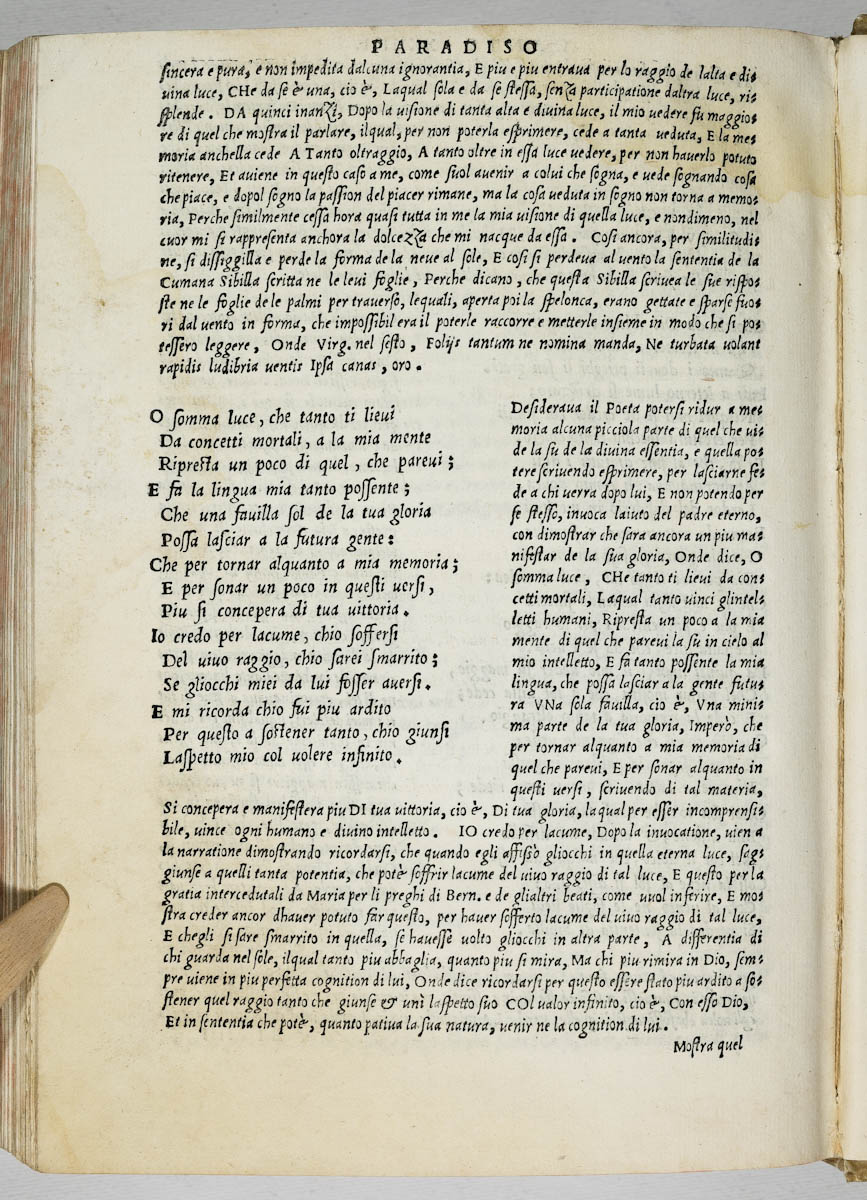 PARADISO
sincera e pura, e non impedita dalcuna ignorantia, E piu e piu entraua per lo raggio de lalta e di⸗
uina luce, CHe da se è una, cio è, Laqual sola e da se stessa, senza participatione daltra luce, ri⸗
splende. DA quinci inanzi, Dopo la uisione di tanta alta e diuina luce, il mio uedere fu maggio⸗
re di quel che mostra il parlare, ilqual, per non poterla esprimere, cede a tanta ueduta, E la me⸗
moria anchella cede A Tanto oltraggio, A tanto oltre in essa luce uedere, per non hauerlo potuto
ritenere, Et auiene in questo caso a me, come suol auenir a colui che sogna, e uede sognando cosa
che piace, e dopol sogno la passion del piacer rimane, ma la cosa ueduta in sogno non torna a memo⸗
ria, Perche similmente cessa hora quasi tutta in me la mia uisione di quella luce, e nondimeno, nel
cuor mi si rappresenta anchora la dolcezza che mi nacque da essa. Cosi ancora, per similitudi⸗
ne, si dissiggilla e perde la forma de la neue al sole, E cosi si perdeua al uento la sententia de la
Cumana Sibilla scritta ne le leui foglie, Perche dicano, che questa Sibilla scriuea le sue rispo⸗
ste ne le foglie de le palmi per trauerso, lequali, aperta poi la spelonca, erano gettate e sparse fuo⸗
ri dal uento in forma, che impossibil era il poterle raccorre e metterle insieme in modo che si po⸗
tessero leggere, Onde Virg. nel sesto, Folijs tantum ne nomina manda, Ne turbata uolant
rapidis ludibria uentis Ipsa canas, oro.
O somma luce, che tanto ti lieui
Da concetti mortali, a la mia mente
Ripresta un poco di quel, che pareui;
E fa la lingua mia tanto possente;
Che una fauilla sol de la tua gloria
Possa lasciar a la futura gente:
Che per tornar alquanto a mia memoria;
E per sonar un poco in questi uersi,
Piu si concepera di tua uittoria.
Io credo per lacume, chio soffersi
Del uiuo raggio, chio sarei smarrito;
Se gliocchi miei da lui fosser auersi.
E mi ricorda chio fui piu ardito
Per questo a sostener tanto, chio giunsi
Laspetto mio col uolere infinito.
Desideraua il Poeta potersi ridur a me⸗
moria alcuna picciola parte di quel che ui⸗
de la su de la diuina essentia, e quella po⸗
tere scriuendo esprimere, per lasciarne fe⸗
de a chi uerra dopo lui, E non potendo per
se stesso, inuoca laiuto del padre eterno,
con dimostrar che sara ancora un piu ma⸗
nifestar de la sua gloria, Onde dice, O
somma luce, CHe tanto ti lieui da con⸗
cetti mortali, Laqual tanto uinci glintel⸗
letti humani, Ripresta un poco a la mia
mente di quel che pareui la su in cielo al
mio intelletto, E fa tanto possente la mia
lingua, che possa lasciar a la gente futu⸗
ra VNa sola fauilla, cio è, Vna mini⸗
ma parte de la tua gloria, Imperò, che
per tornar alquanto a mia memoria di
quel che pareui, E per sonar alquanto in
questi uersi, scriuendo di tal materia,
Si concepera e manifestera piu DI tua uittoria, cio è, Di tua gloria, laqual per esser incomprensi⸗
bile, uince ogni humano e diuino intelletto. IO credo per lacume, Dopo la inuocatione, uien a
la narratione dimostrando ricordarsi, che quando egli affissò gliocchi in quella eterna luce, sag⸗
giunse a quelli tanta potentia, che potè soffrir lacume del uiuo raggio di tal luce, E questo per la
gratia intercedutali da Maria per li preghi di Bern. e de glialtri beati, come uuol inferire, E mo⸗
stra creder ancor dhauer potuto far questo, per hauer sofferto lacume del uiuo raggio di tal luce,
E chegli si sare smarrito in quella, se hauesse uolto gliocchi in altra parte, A differentia di
chi guarda nel sole, ilqual tanto piu abbaglia, quanto piu si mira, Ma chi piu rimira in Dio, sem⸗
pre uiene in piu perfetta cognition di lui, Onde dice ricordarsi per questo essere stato piu ardito a so⸗
stener quel raggio tanto che giunse & unì laspetto suo COl ualor infinito, cio è, Con esso Dio,
Et in sententia che potè, quanto patiua la sua natura, uenir ne la cognition di lui.
Mostra quel